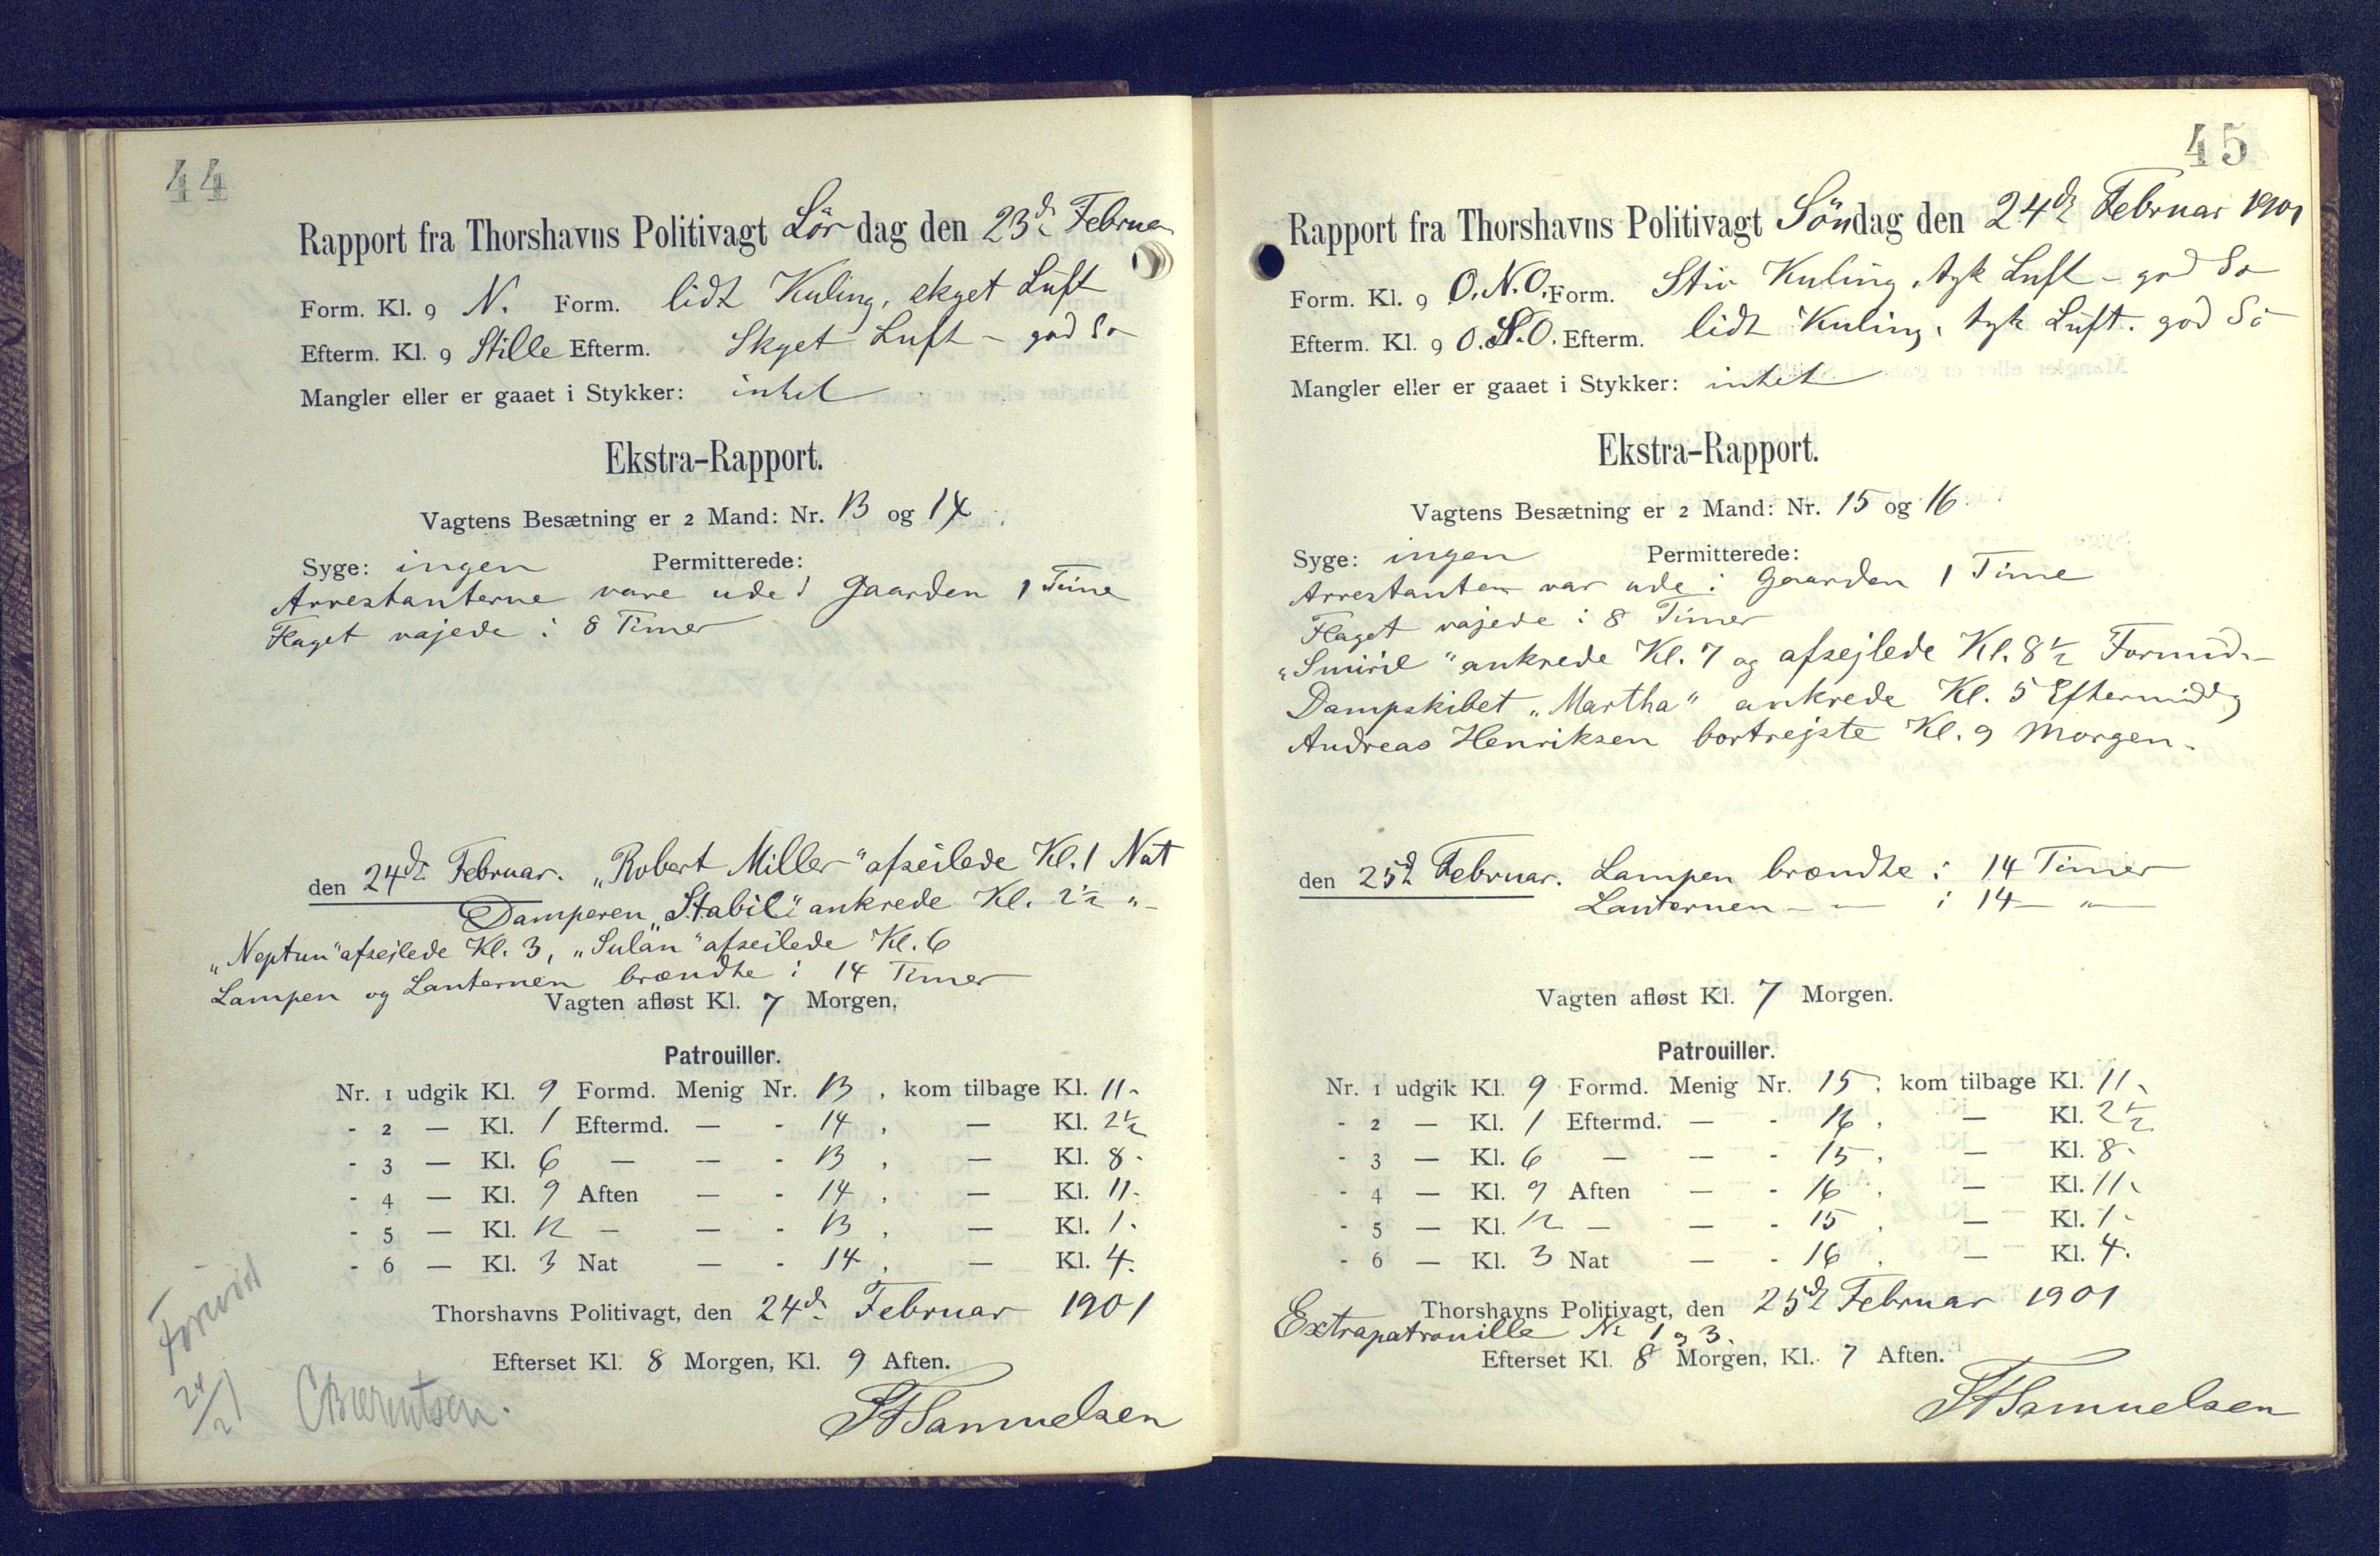 44
Rapport fra Thorshavns Politivagt Lördag den 23de Februar
Form. Kl. 9 N. Form. lidt Kuling, skyet Luft
Efterm. Kl. 9 Stille Efterm. Skyet Luft - god Sö
Mangler eller er gaaet i Stykker: intet
Ekstra-Rapport.
Vagtens Besætning er 2 Mand: Nr. 13 og 14
Syge: ingen Permitterede:
Arrestanterne vare ude i Gaarden 1 Time
Flaget vajede i 8 Timer
den 24de Februar. „Robert Miller" afseilede Kl. 1 Nat
Damperen „Stabil" ankrede Kl. 2½ "-
„Neptun" afsejlede Kl. 3, „Sulan" afseilede Kl. 6
Lampen og Lanternen brændte i 14 Timer
Vagten afløst Kl. 7 Morgen,
Patrouiller.
Nr. 1 udgik Kl. 9 Formd. Menig Nr. 13, kom tilbage Kl. 11-
- 2 — Kl. 1 Eftermd. — - 14, — Kl. 2½
- 3 — Kl. 6 — — - 13, — Kl. 8-
- 4 — Kl. 9 Aften — - 14, — Kl. 11-
- 5 — Kl. 12 — — - 13, — Kl. 1-
- 6 — Kl. 3 Nat — - 14, — Kl. 4.
Thorshavns Politivagt, den 24de Februar 1901
Efterset Kl. 8 Morgen, Kl. 9 Aften.
Forevist
24/2 1
CBærentsen.
Samuelsen
45
Rapport fra Thorshavns Politivagt Söndag den 24de Februar 1901
Form. Kl. 9 O.N.O. Form. Stiv Kuling, tyk Luft - god Sö
Efterm. Kl. 9 O.S.O. Efterm. lidt Kuling, tyk Luft. god Sö
Mangler eller er gaaet i Stykker: intet
Ekstra-Rapport.
Vagtens Besætning er 2 Mand: Nr. 15 og 16.
Syge: ingen Permitterede:
Arrestanten var ude i Gaarden 1 Time
Flaget vajede i 8 Timer
„Smiril" ankrede Kl. 7 og afsejlede Kl. 8½ Formid.-
Dampskibet „Martha" ankrede Kl. 5 Eftermidg
Andreas Henriksen bortrejste Kl. 9 Morgen.
den 25d Februar. Lampen brændte i 14 Timer
Lanternen - - i 14 - " -
Vagten afløst Kl. 7 Morgen.
Patrouiller.
Nr. 1 udgik Kl. 9 Formd. Menig Nr. 15, kom tilbage Kl. 11-
- 2 — Kl. 1 Eftermd. — - 16, — Kl. 2½
- 3 — Kl. 6 — — - 15, — Kl. 8-
- 4 — Kl. 9 Aften — - 16, — Kl. 11-
- 5 — Kl. 12 — — - 15, — Kl. 1-
- 6 — Kl. 3 Nat — - 16, — Kl. 4.
Thorshavns Politivagt, den 25de Februar 1901
Extrapatrouille Nr 1 og 3.
Efterset Kl. 8 Morgen, Kl. 7 Aften.
Samuelsen